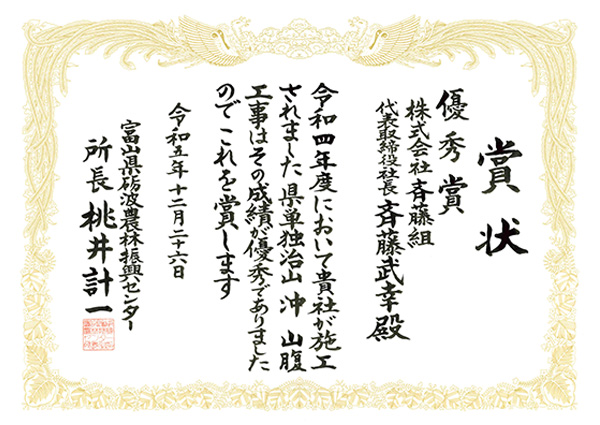 賞状
優秀賞
株式会社斉藤組
代表取締役社長 斉藤武幸殿
令和四年度において貴社が施工
されました県単独治山 沖 山腹
工事はその成績が優秀でありました
のでこれを賞します
令和五年十二月二十六日
富山県砺波農林振興センター
所長 桃井計一